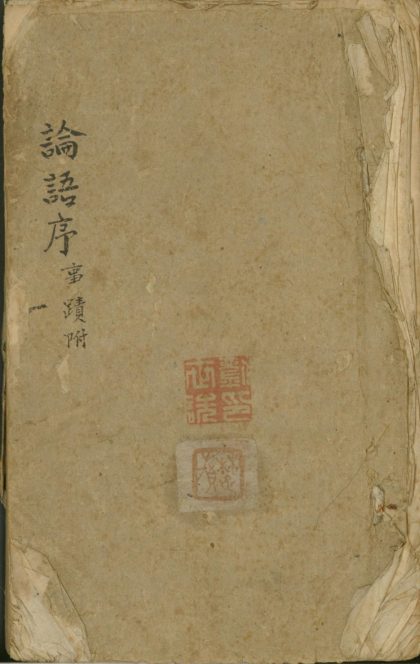 論語序
事蹟附
一